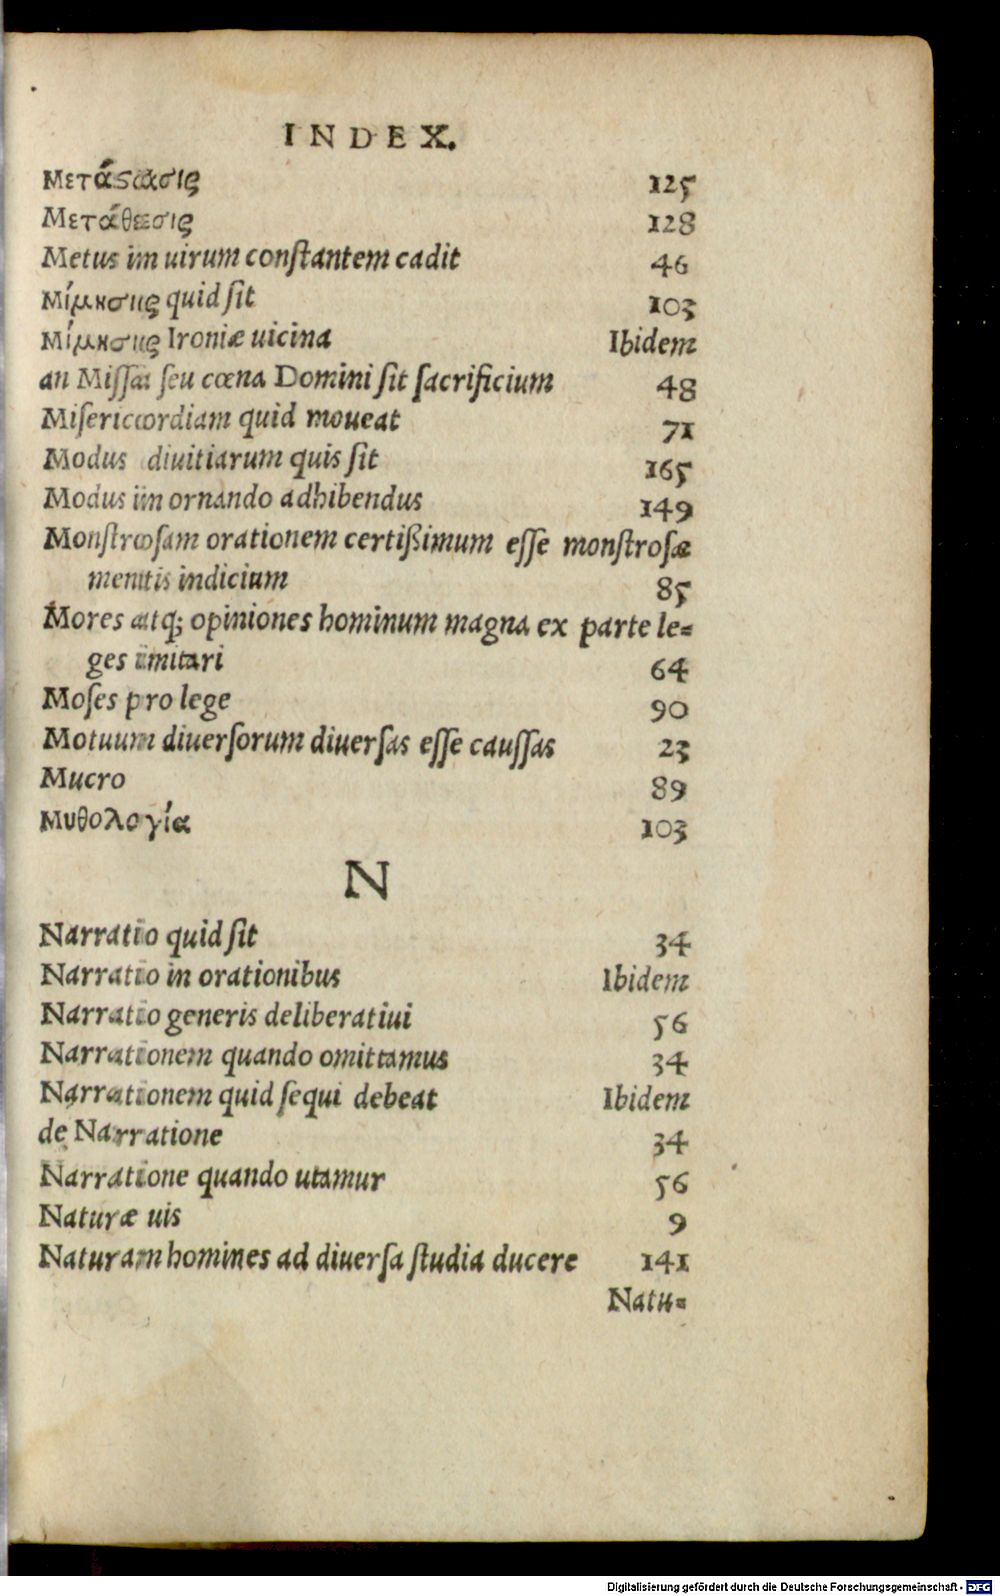 INDEX.
Μετάϛασις 125
Μετάθεσις 128
Metus in uirum conſtantem cadit 46
Μίμησις quid ſit 103
Μίμησις Ironiæ uicina Ibidem
an Miſſa ſeu cœna Domini ſit ſacrificium 48
Miſericordiam quid moueat 71
Modus diuitiarum quis ſit 165
Modus in ornando adhibendus 149
Monſtroſam orationem certißimum eſſe monſtroſæ
mentis indicium 85
Mores atq; opiniones hominum magna ex parte le=
ges imitari 64
Moſes pro lege 90
Motuum diuerſorum diuerſas eſſe cauſſas 23
Mucro 89
Μυθολογία 103
N
Narratio quid ſit 34
Narratio in orationibus Ibidem
Narratio generis deliberatiui 56
Narrationem quando omittamus 34
Narrationem quid ſequi debeat Ibidem
de Narratione 34
Narratione quando utamur 56
Naturæ uis 9
Naturam homines ad diuerſa ſtudia ducere 141
Natu=
Digitalisierung gefördert durch die Deutsche Forschungsgemeinschaft - DFG